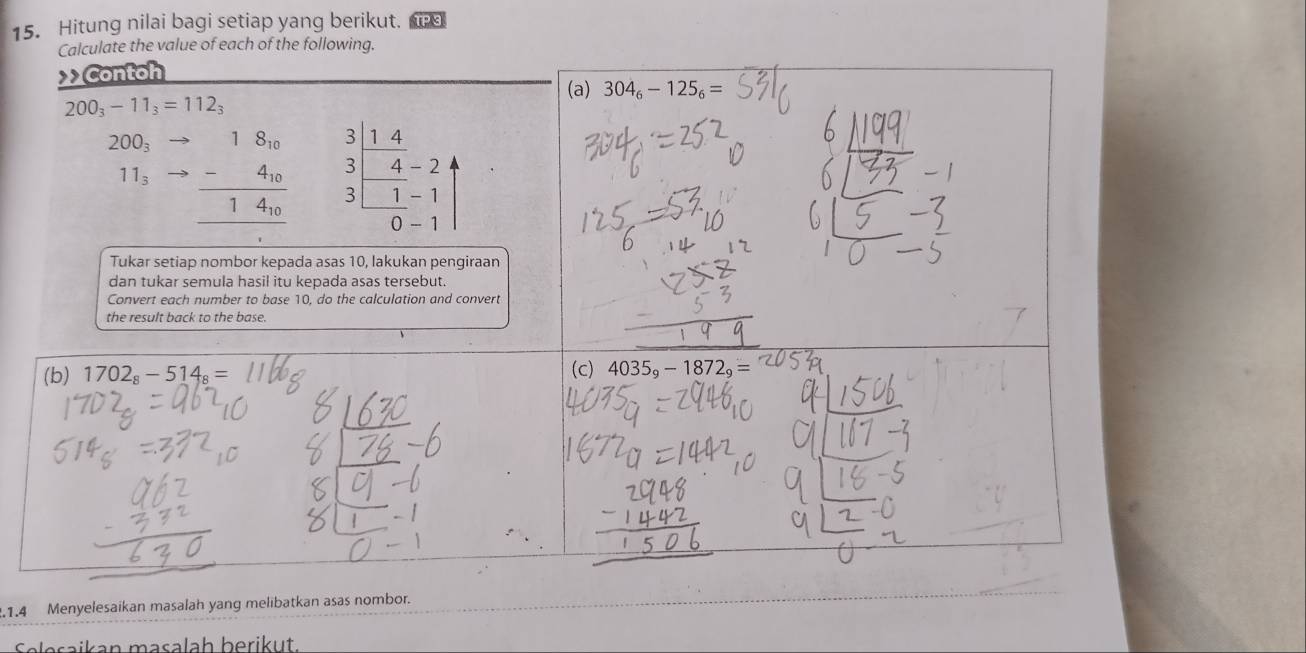 15. Hitung nilai bagi setiap yang berikut. TP 3
Calculate the value of each of the following.
>> Contoh
200₃ − 11₃ = 112₃
200₃ → 1 8₁₀
11₃ → − 4₁₀
1 4₁₀
3 | 1 4
3 | 4 − 2
3 | 1 − 1
0 − 1
Tukar setiap nombor kepada asas 10, lakukan pengiraan
dan tukar semula hasil itu kepada asas tersebut.
Convert each number to base 10, do the calculation and convert
the result back to the base.
(a) 304₆ − 125₆ = 531₆
304₆ = 252₁₀
125₆ = 53₁₀
14 12
252
− 53
199
6 | 199
6 | 33 − 1
6 | 5 − 3
0 − 5
7
(b) 1702₈ − 514₈ = 1166₈
1702₈ = 962₁₀
514₈ = 332₁₀
962
− 332
630
8 | 630
8 | 78 − 6
8 | 9 − 6
8 | 1 − 1
0 − 1
(c) 4035₉ − 1872₉ = 2053₉
4035₉ = 2948₁₀
1872₉ = 1442₁₀
2948
− 1442
1506
9 | 1506
9 | 167 − 3
9 | 18 − 5
9 | 2 − 0
0 − 2
.1.4 Menyelesaikan masalah yang melibatkan asas nombor.
Selesaikan masalah berikut.